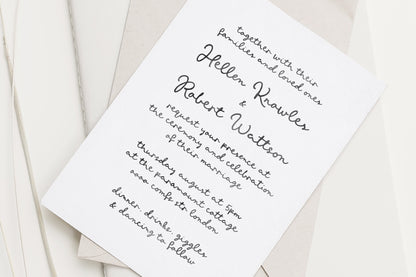 together with their
families and loved ones
Hellen Knowles
&
Robert Wattson
request your presence at
the ceremony and celebration
of their marriage
thursday august at 5pm
at the paramount cottage
0000 confs str london
dinner, drinks, giggles
& dancing to follow